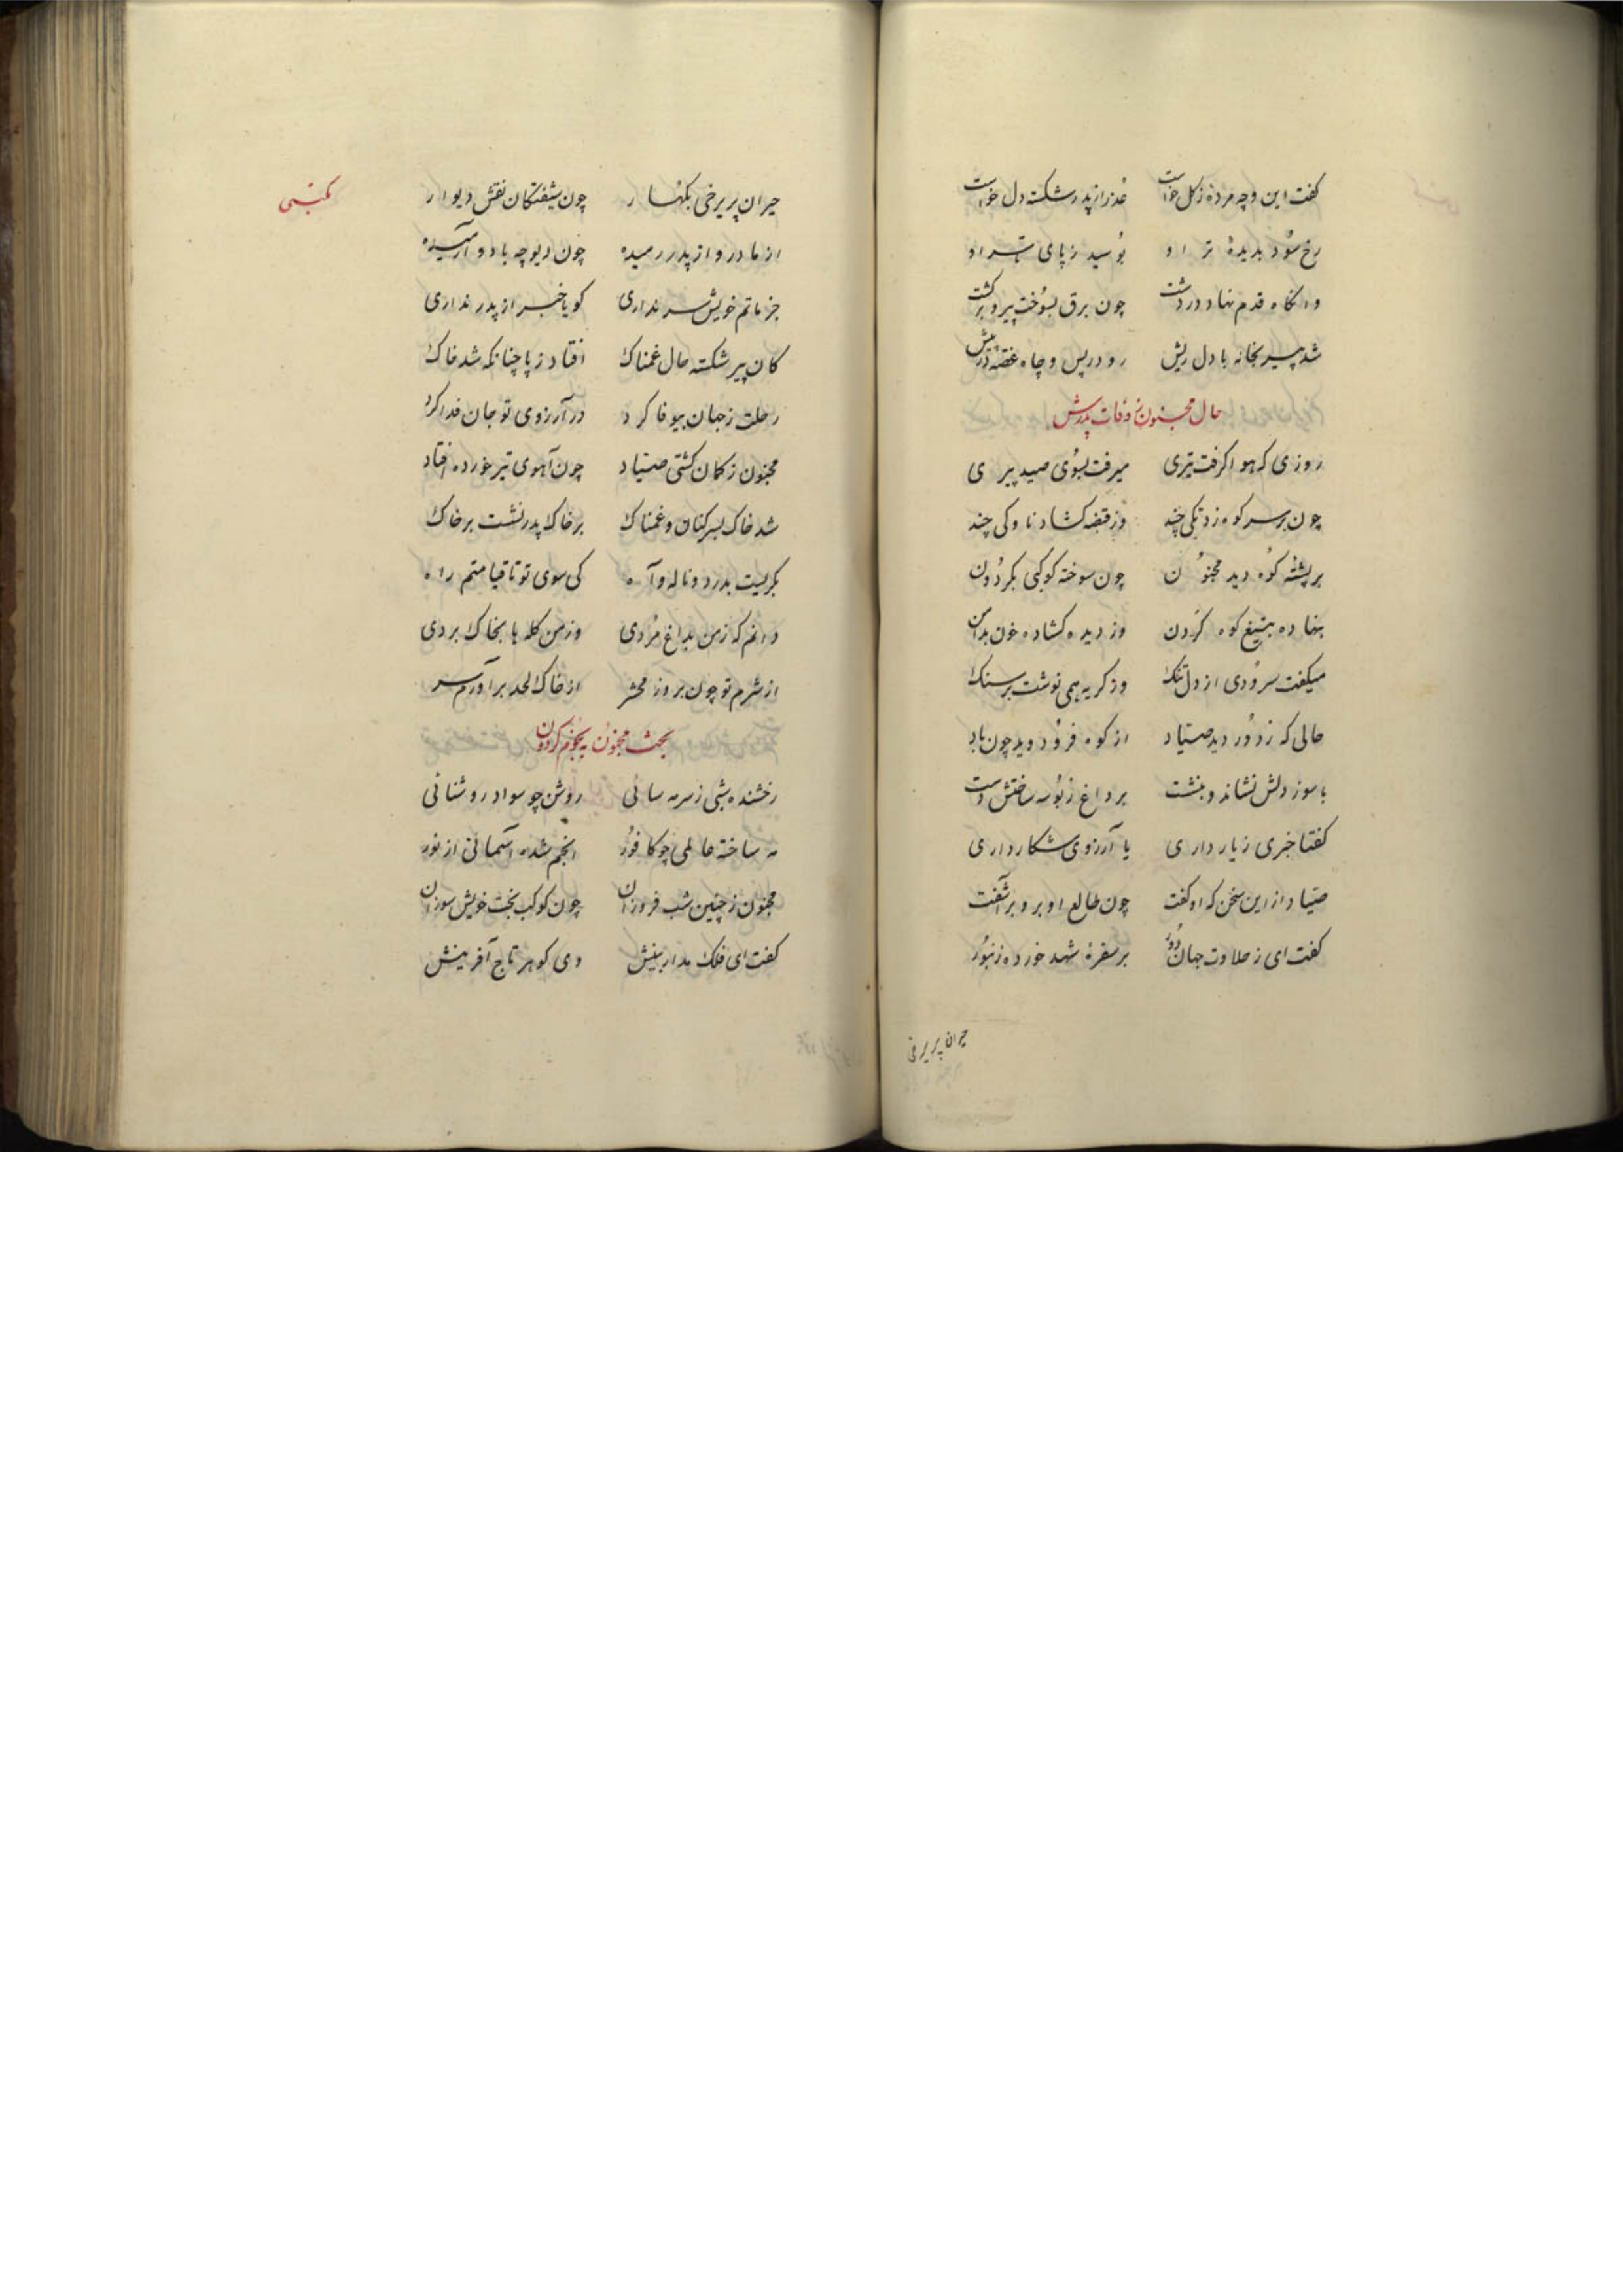 گفت این و چه مرده زکل خواست عذر از پدر شکسته دل خواست
رخ سود بدیدهٔ تر او بوسید ز پای تا سر او
وانگاه قدم نهاد در دشت چون برق بسوخت پیر و برگشت
شد پیر بخانه با دل ریش رو در پس و چاه غصه در پیش
حال مجنون و وفات پدرش
روزی که هوا گرفت تیری میرفت بسوی صید پیری
چون بر سر کوه زد تکی چند وز قبضه گشاد ناوکی چند
بر پشته کوه دید مجنون چون سوخته کوکبی بگردون
بنهاده بتیغ کوه گردن وز دیده گشاده خون بدامن
میگفت سرودی از دل تنگ وز گریه همی نوشت بر سنگ
حالی که ز دور دید صیاد از کوه فرود دوید چون باد
با سوز دلش نشاند و بنشست بر داغ ز بوسه ساختش دست
گفتا خبری ز یار داری یا آرزوی شکار داری
صیاد از این سخن که او گفت چون طالع او برو برآشفت
گفت ای ز حلاوت جهان دور بر سفرهٔ شهد خورده زنبور
حیران پریرخی
مکتبی
حیران پریرخی بکهسار چون شیفتگان نقش دیوار
از مادر و از پدر رمیده چون دیوچه با دد آرمیده
جز ماتم خویش سر نداری گویا خبر از پدر نداری
کان پیر شکسته حال غمناک افتاد ز پا چنانکه شد خاک
رحلت ز جهان بیوفا کرد در آرزوی تو جان فدا کرد
مجنون ز کمان کشتی صیاد چون آهوی تیر خورده افتاد
شد خاک بسر کنان و غمناک بر خاک پدر نشست بر خاک
بگریست بدرد و ناله و آه کی سوی تو تا قیامتم راه
دانم که ز من بداغ مردی وز من گله ها بخاک بردی
از شرم تو چون بروز محشر از خاک لحد برآورم سر
بحث مجنون به نجوم گردون
رخشنده شبی ز سرمه سائی روشن چو سواد روشنائی
مه ساخته عالمی چو کافور انجم شده آسمانی از نور
مجنون ز چنین شب فروزان چون کوکب بخت خویش سوزان
گفت ای فلک مدار بینش وی گوهر تاج آفرینش